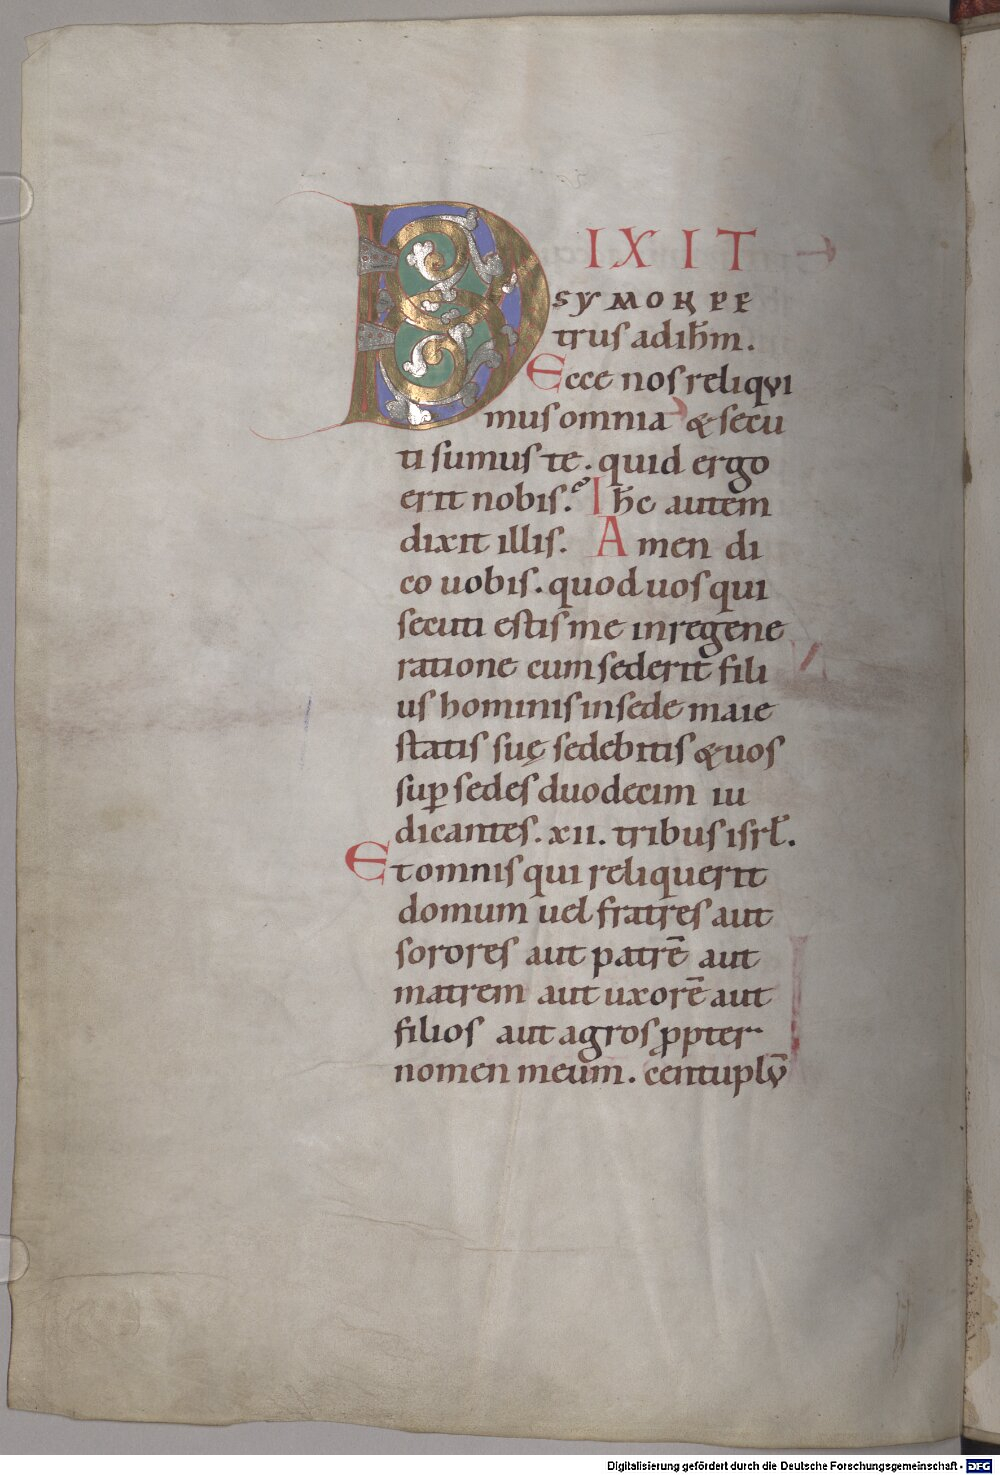 DIXIT
SYMON PE
trus ad ih̅m.
Ecce nos reliqui
mus omnia & secu
ti sumus te. quid ergo
erit nobis. Ih̅c autem
dixit illis. Amen di
co uobis. quod uos qui
secuti estis me in regene
ratione cum sederit fili
us hominis in sede maie
statis suę sedebitis & uos
sup sedes duodecim iu
dicantes. xii. tribus isrl̅.
Et omnis qui reliquerit
domum uel fratres aut
sorores aut patrē aut
matrem aut uxorē aut
filios aut agros ꝓpter
nomen meum. centuplū
Digitalisierung gefördert durch die Deutsche Forschungsgemeinschaft - DFG